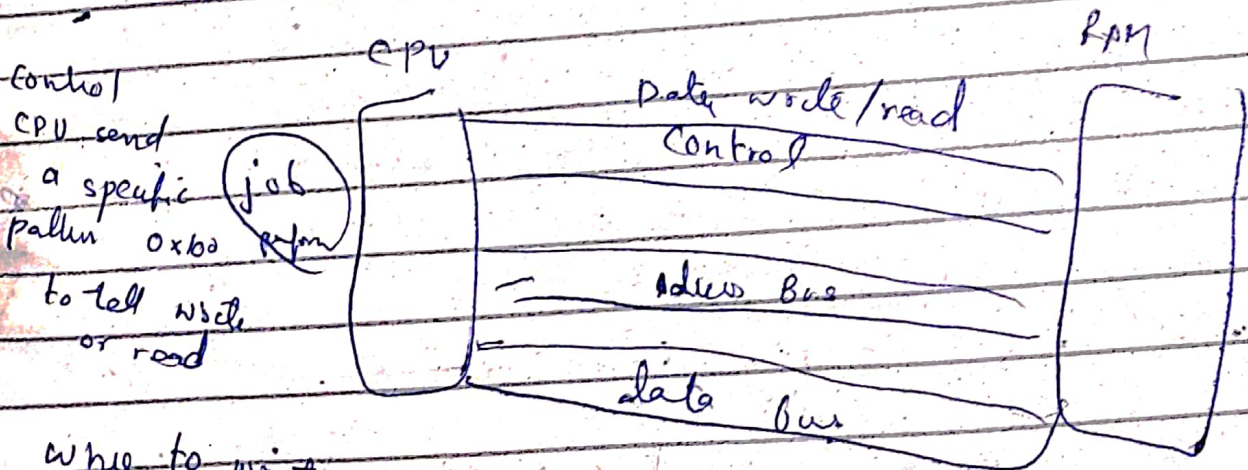 CPU
RAM
Control
CPU send
a specific job
pattern 0x60 perform
to tell write
or read
Data write/read
Control
Address Bus
data bus